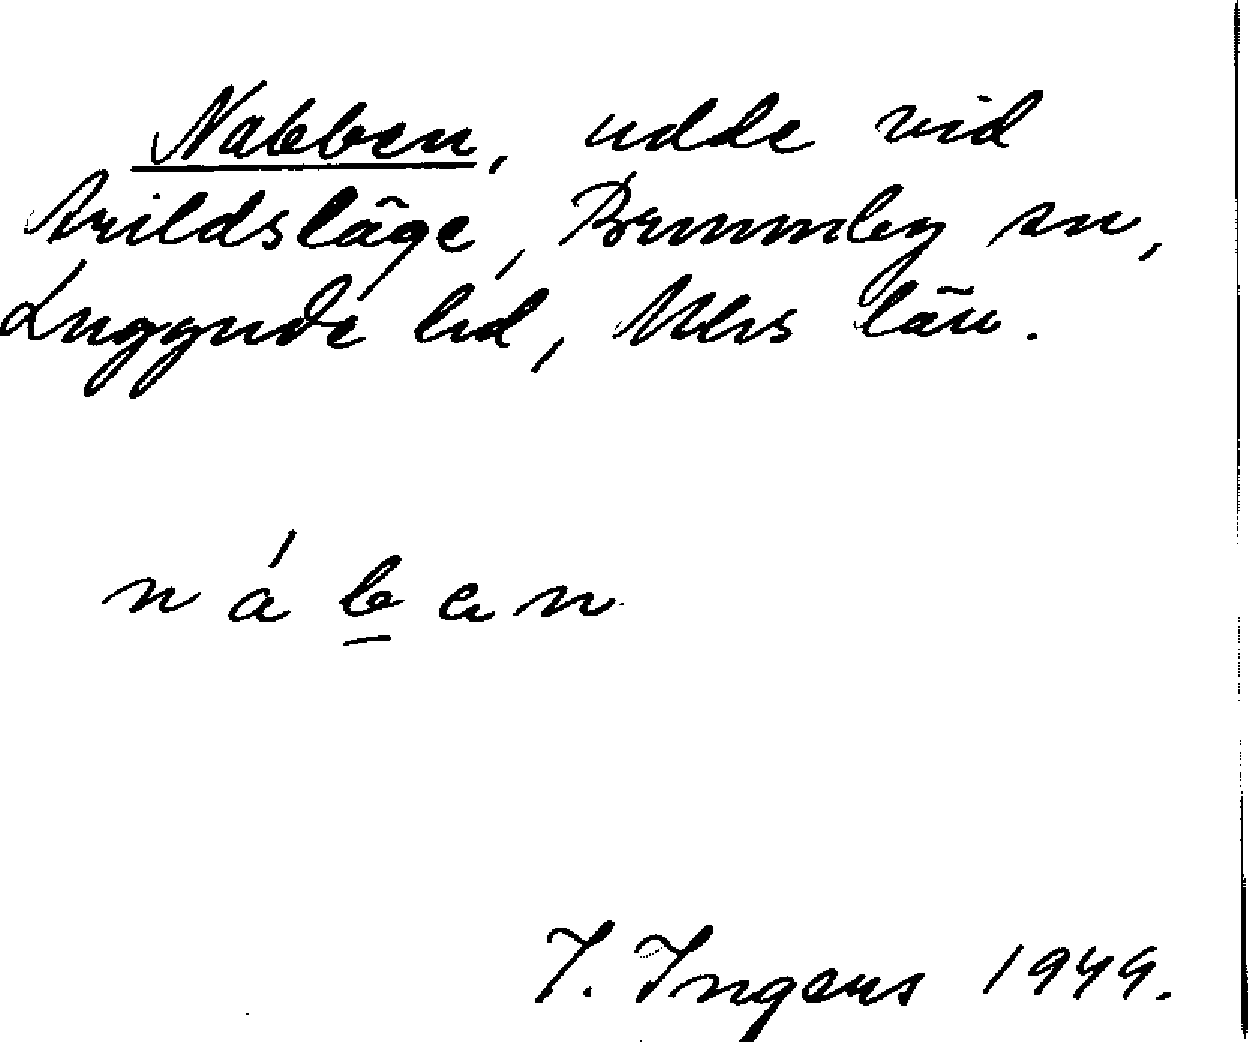 Nabben, udde vid
Arildsläge, Brunnby sn,
Luggude hd, Mlhs län.
n á b a n
J. Ingers 1949.